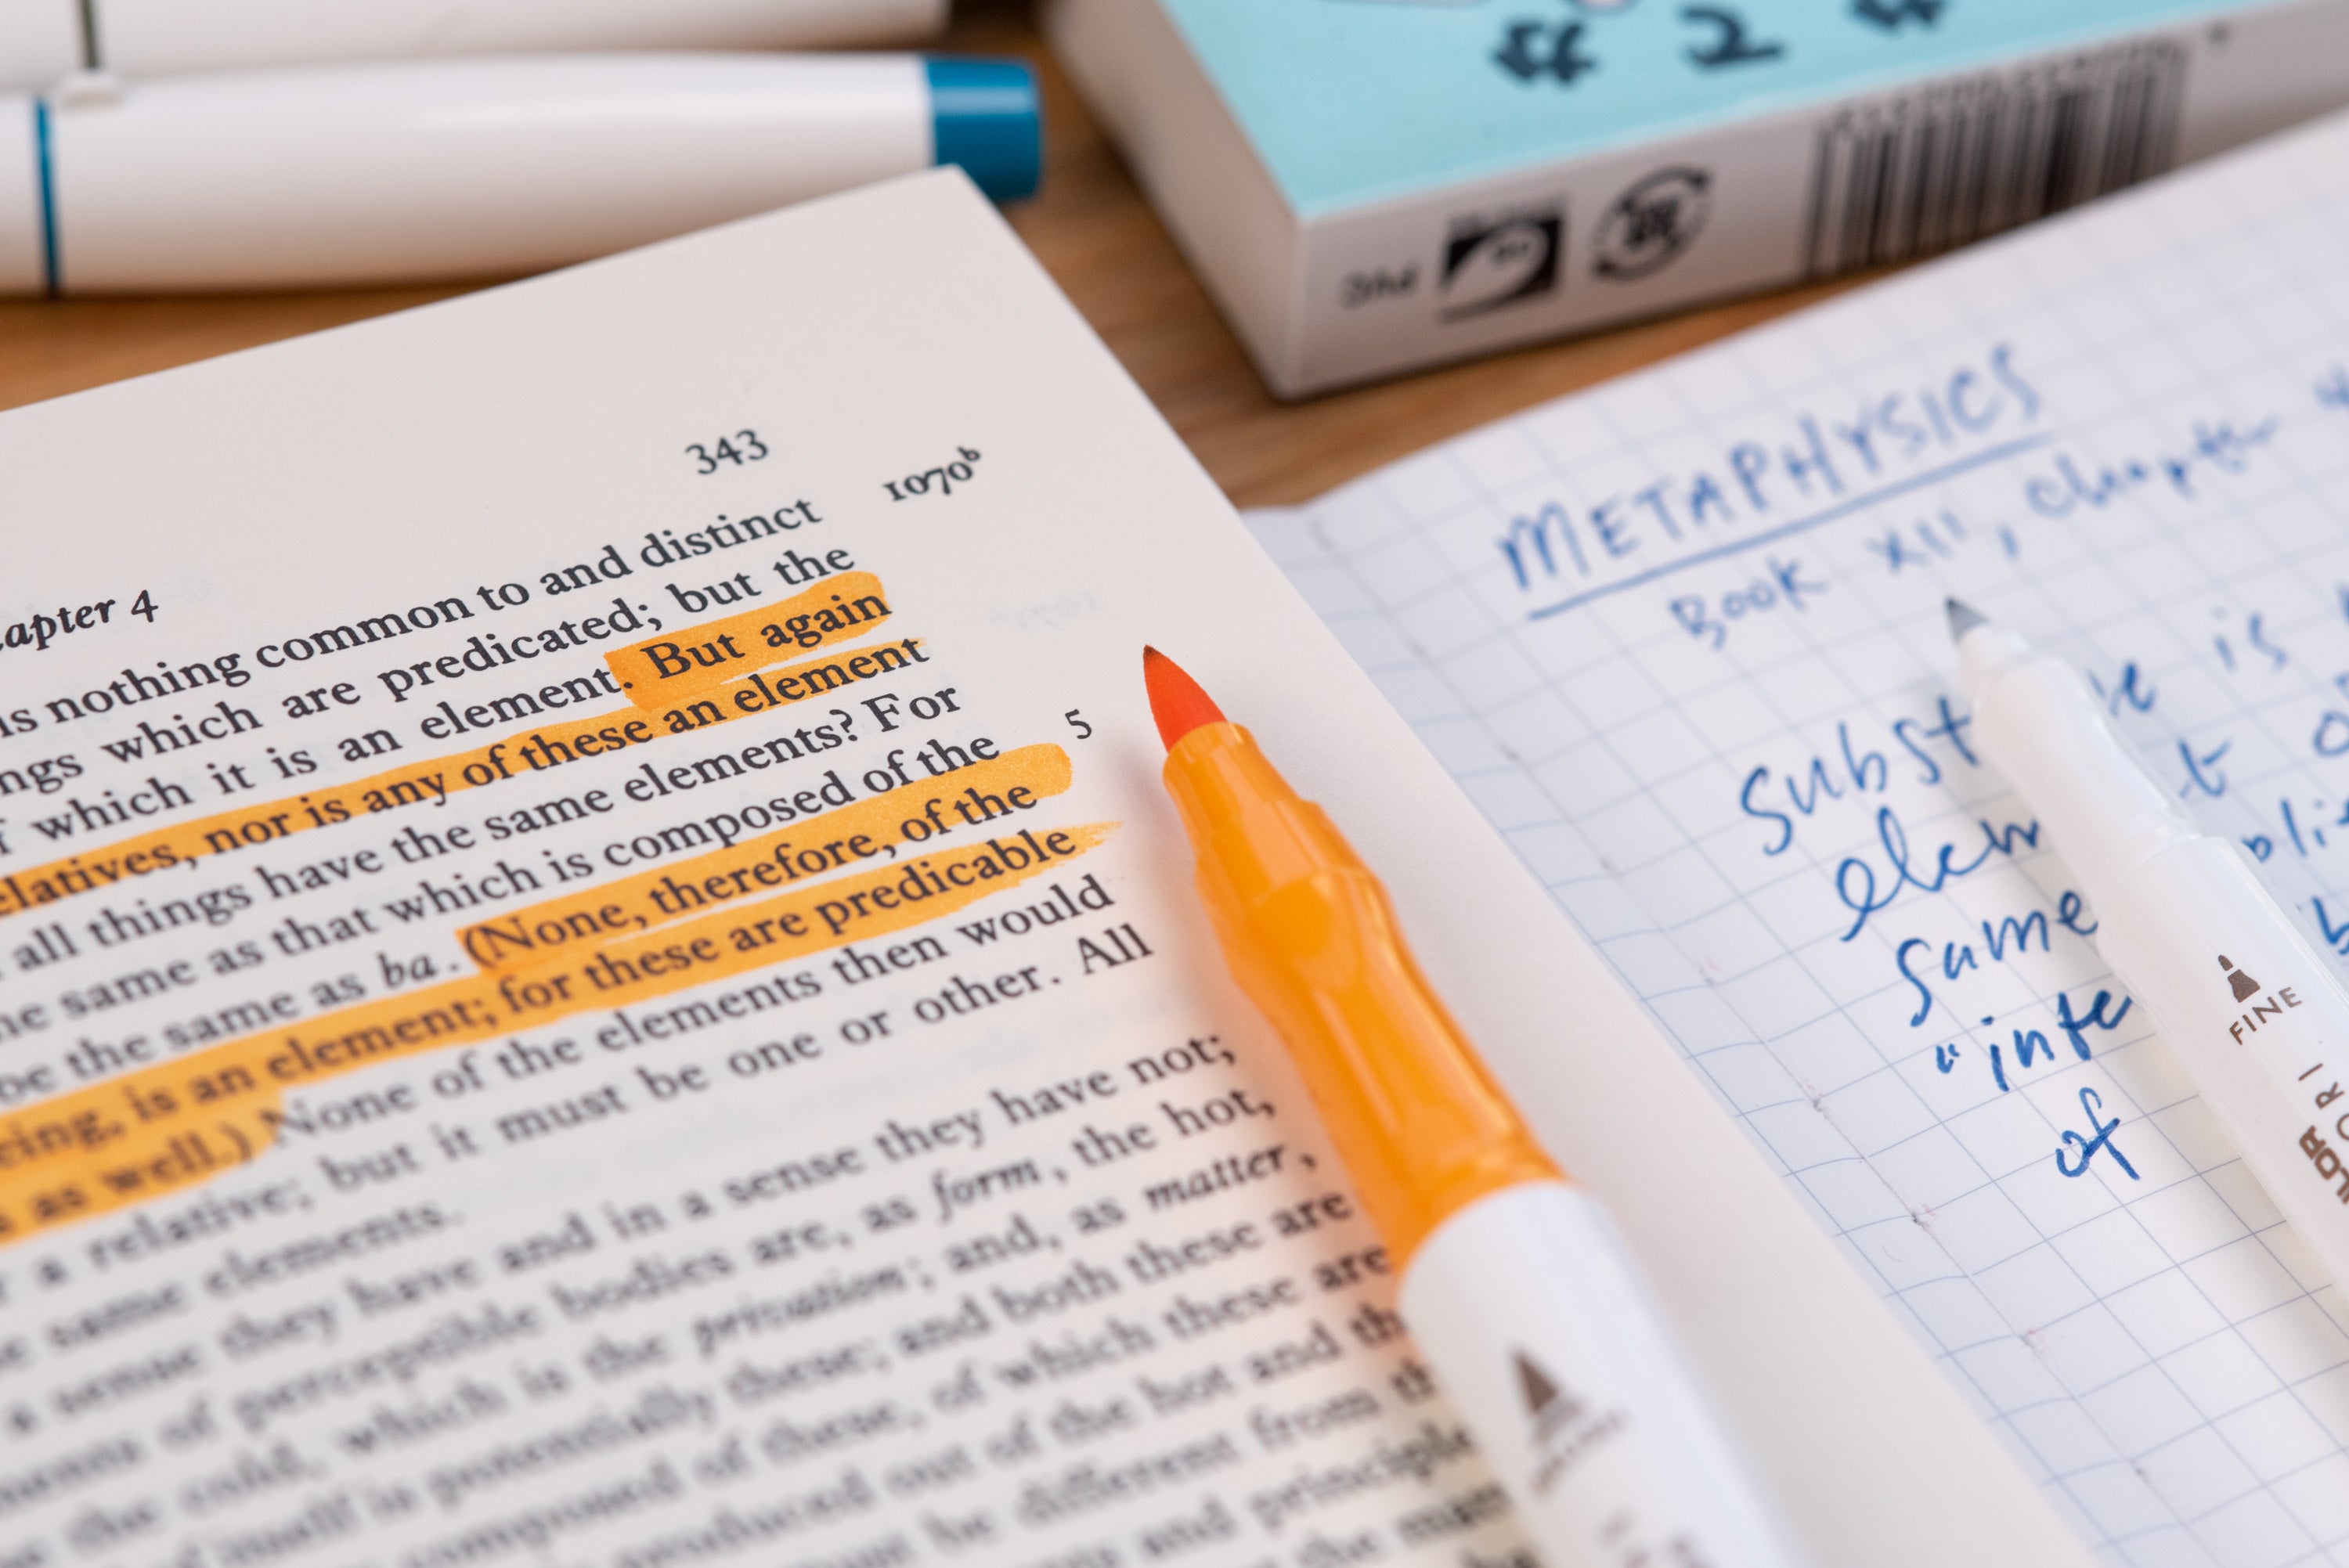 PVC
343
apter 4
1070b
is nothing common to and distinct
ngs which are predicated; but the
f which it is an element. But again
elatives, nor is any of these an element
all things have the same elements? For
ne same as that which is composed of the 5
be the same as ba. (None, therefore, of the
eing, is an element; for these are predicable
s as well.) None of the elements then would
r a relative; but it must be one or other. All
e same elements.
a sense they have and in a sense they have not;
ments of perceptible bodies are, as form, the hot,
the cold, which is the privation; and, as matter,
of itself is potentially these; and both these are
composed of these, of which these are
produced out of the hot and th
must be different from th
and principle
the
METAPHYSICS
Book XII, chapter 4
Subst e is
elem t
same
"inte
of
FINE